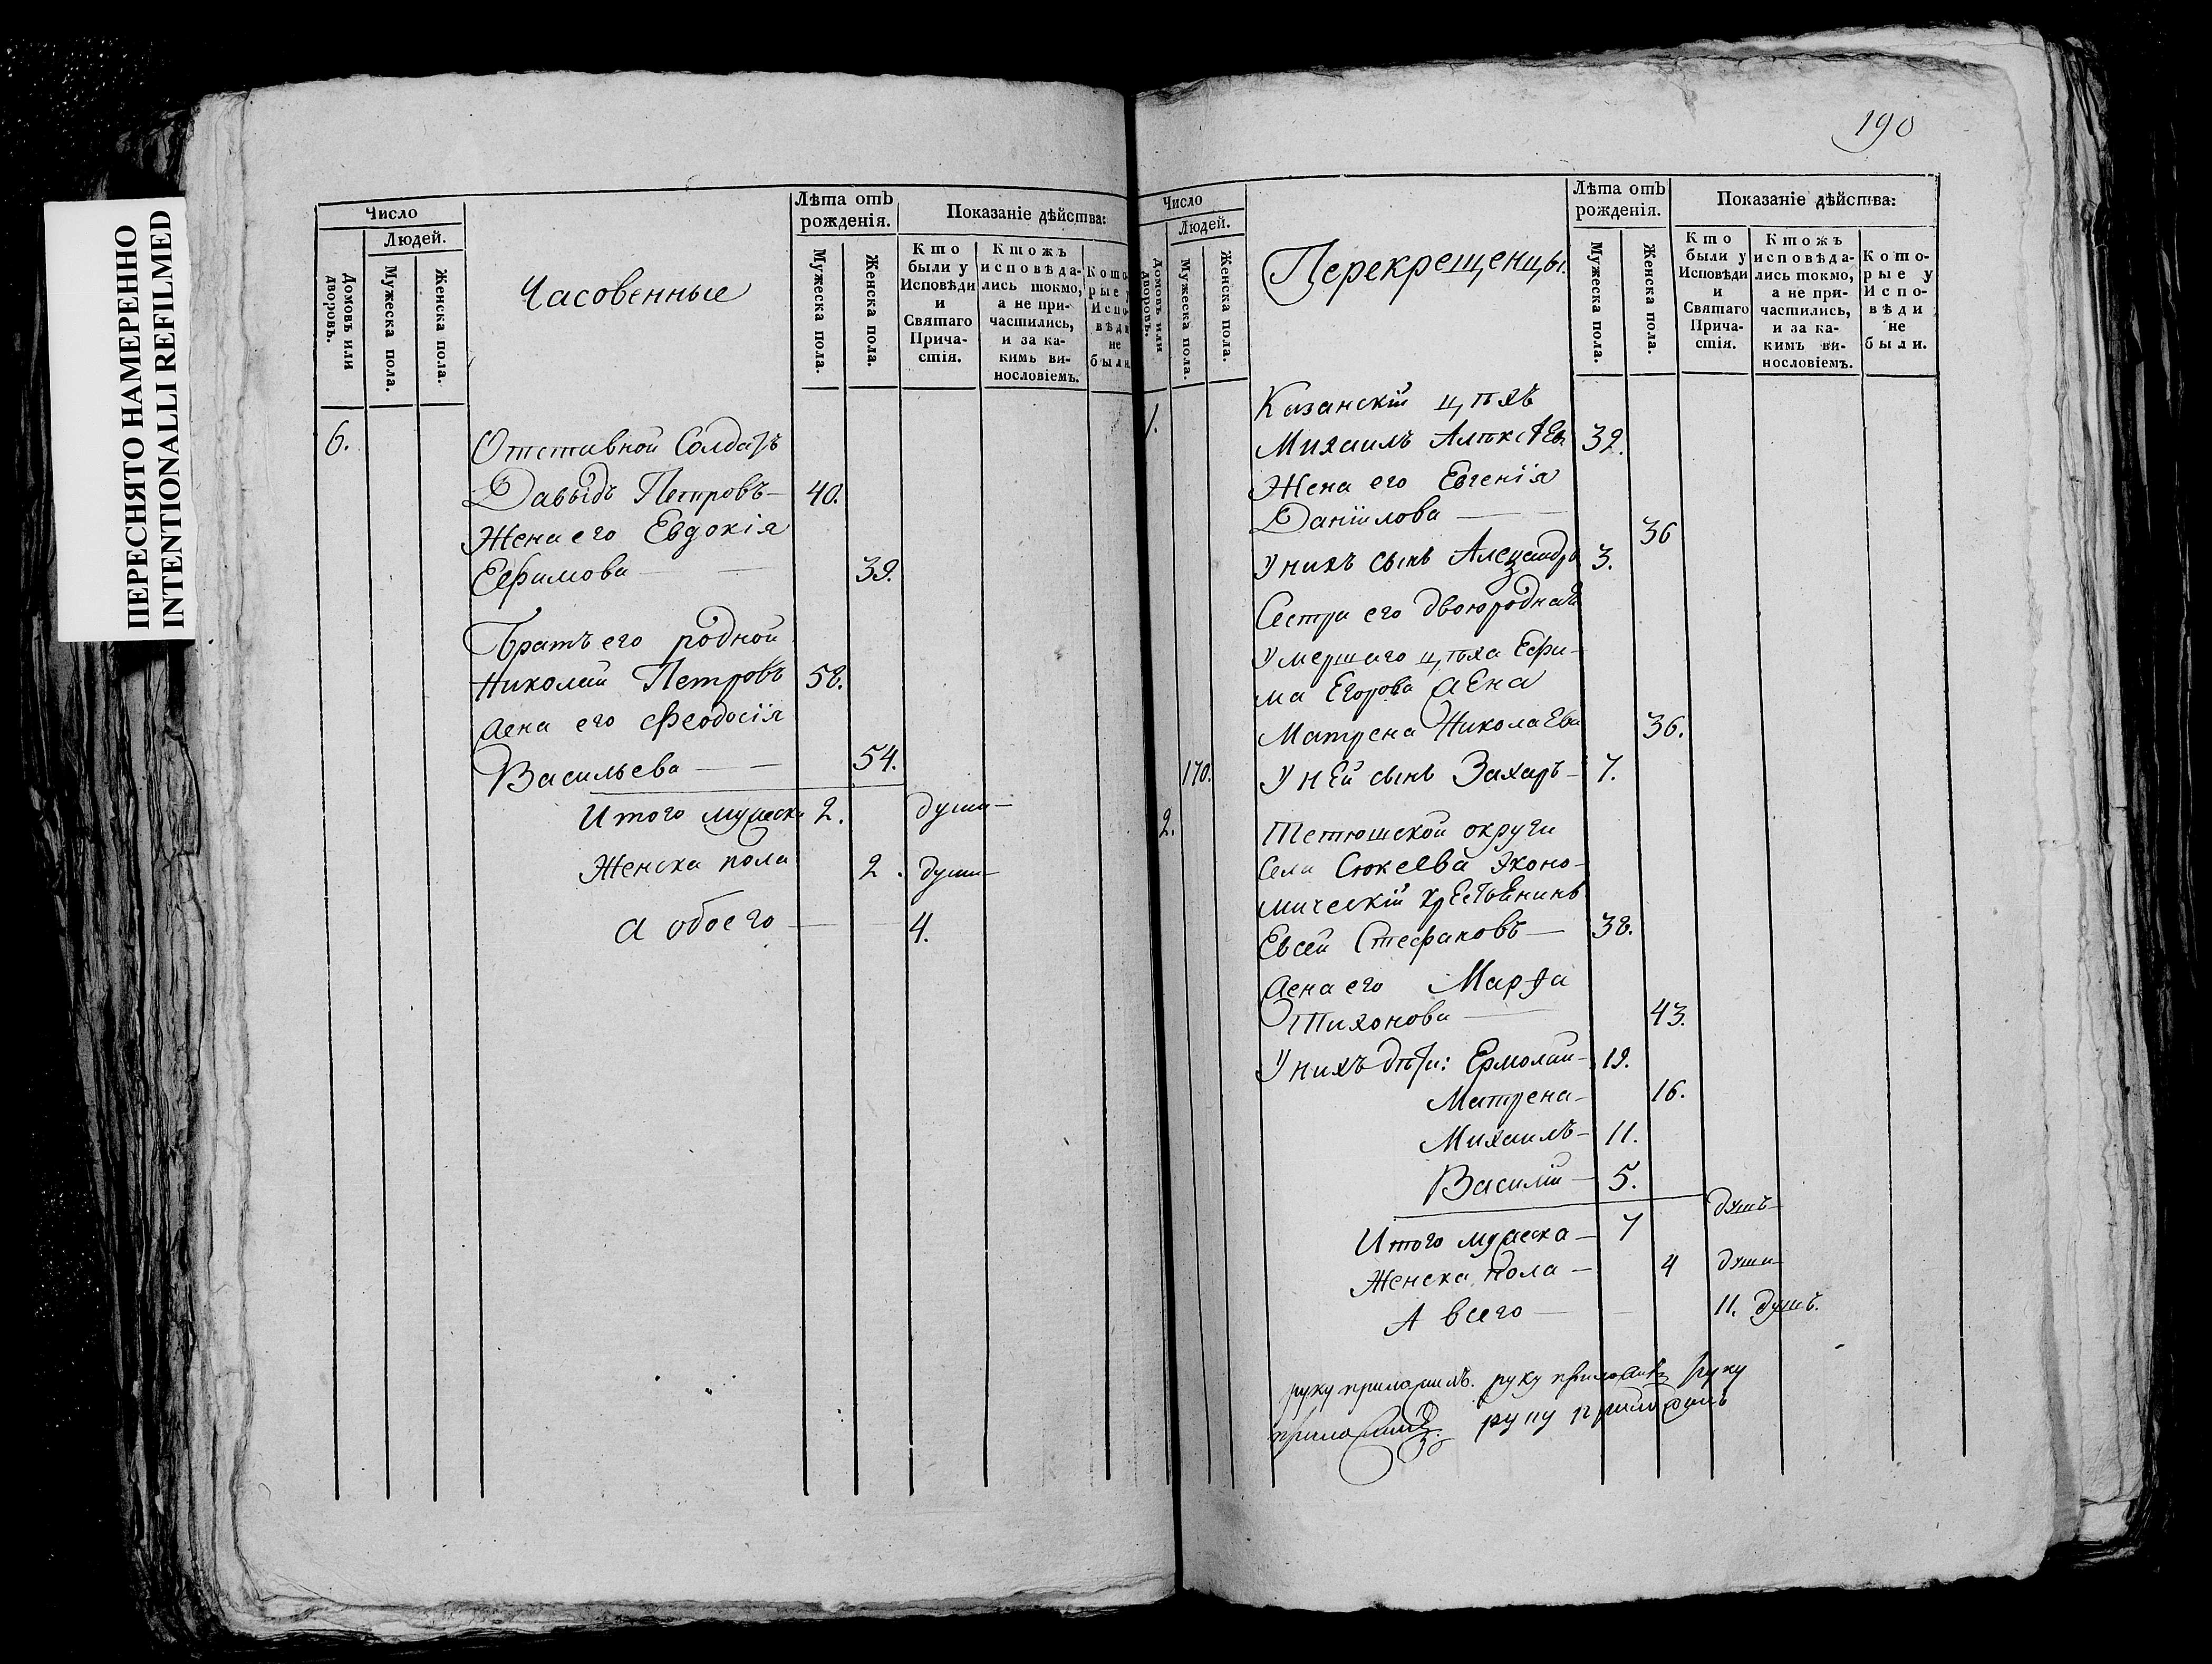 ПЕРЕСНЯТО НАМЕРЕННО
INTENTIONALLI REFILMED
Число
Людей.
Домовъ или дворовъ.
Мужеска пола.
Женска пола.
Часовенные
Лѣта отъ рожденія.
Мужеска пола.
Женска пола.
Показаніе дѣйства:
Кто были у Исповѣди и Святаго Причастія.
Ктожъ исповѣдались токмо, а не причастились, и за какимъ винословіемъ.
Которые у Исповѣди не были.
6.
Отставной Солдатъ
Давыдъ Петровъ — 40.
Жена его Евдокія
Ефимова — 39.
Братъ его родной
Николай Петровъ 58.
жена его Феодосія
Васильева — 54.
Итого мужеска 2. души
Женска пола 2. души
а обоего — 4.
190
Число
Людей.
Домовъ или дворовъ.
Мужеска пола.
Женска пола.
Перекрещенцы.
Лѣта отъ рожденія.
Мужеска пола.
Женска пола.
Показаніе дѣйства:
Кто были у Исповѣди и Святаго Причастія.
Ктожъ исповѣдались токмо, а не причастились, и за какимъ винословіемъ.
Которые у Исповѣди не были.
1. Казанскій
Михаилъ Алексѣев 39.
Жена его Евгенія
Даніилова — 36
У нихъ сынъ 3.
Сестра его двоюродная
Умершаго Ефи-
ма Егорова жена
Матрена Николаева 36.
170. У ней сынъ Захаръ — 7.
2. Тетюшской округи
Села Сюкеева эконо-
мическій крестьянинъ
Евсей Стефановъ — 38.
жена его Марѳа
Тихонова — 43.
У нихъ дѣти: Ермолай — 19.
Матрена — 16.
Михаилъ — 11.
Василій — 5.
Итого мужеска — 7 душъ
Женска пола — 4 души
А всего — 11. душъ.
руку приложилъ. руку приложилъ руку
приложилъ. руку приложилъ